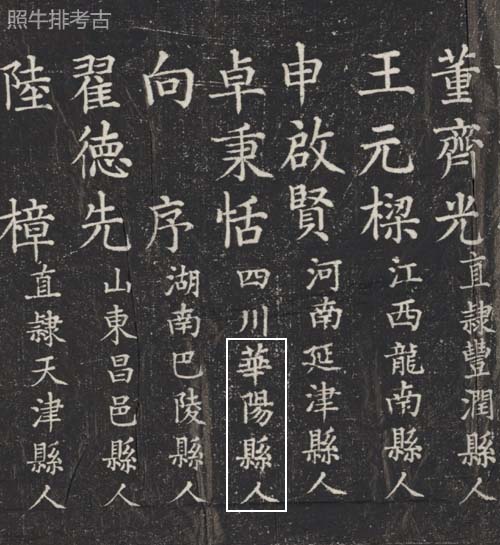 照牛排考古
董齊光直隸豐潤縣人
王元樑江西龍南縣人
申啟賢河南延津縣人
卓秉恬四川華陽縣人
向序湖南巴陵縣人
翟德先山東昌邑縣人
陸樟直隸天津縣人